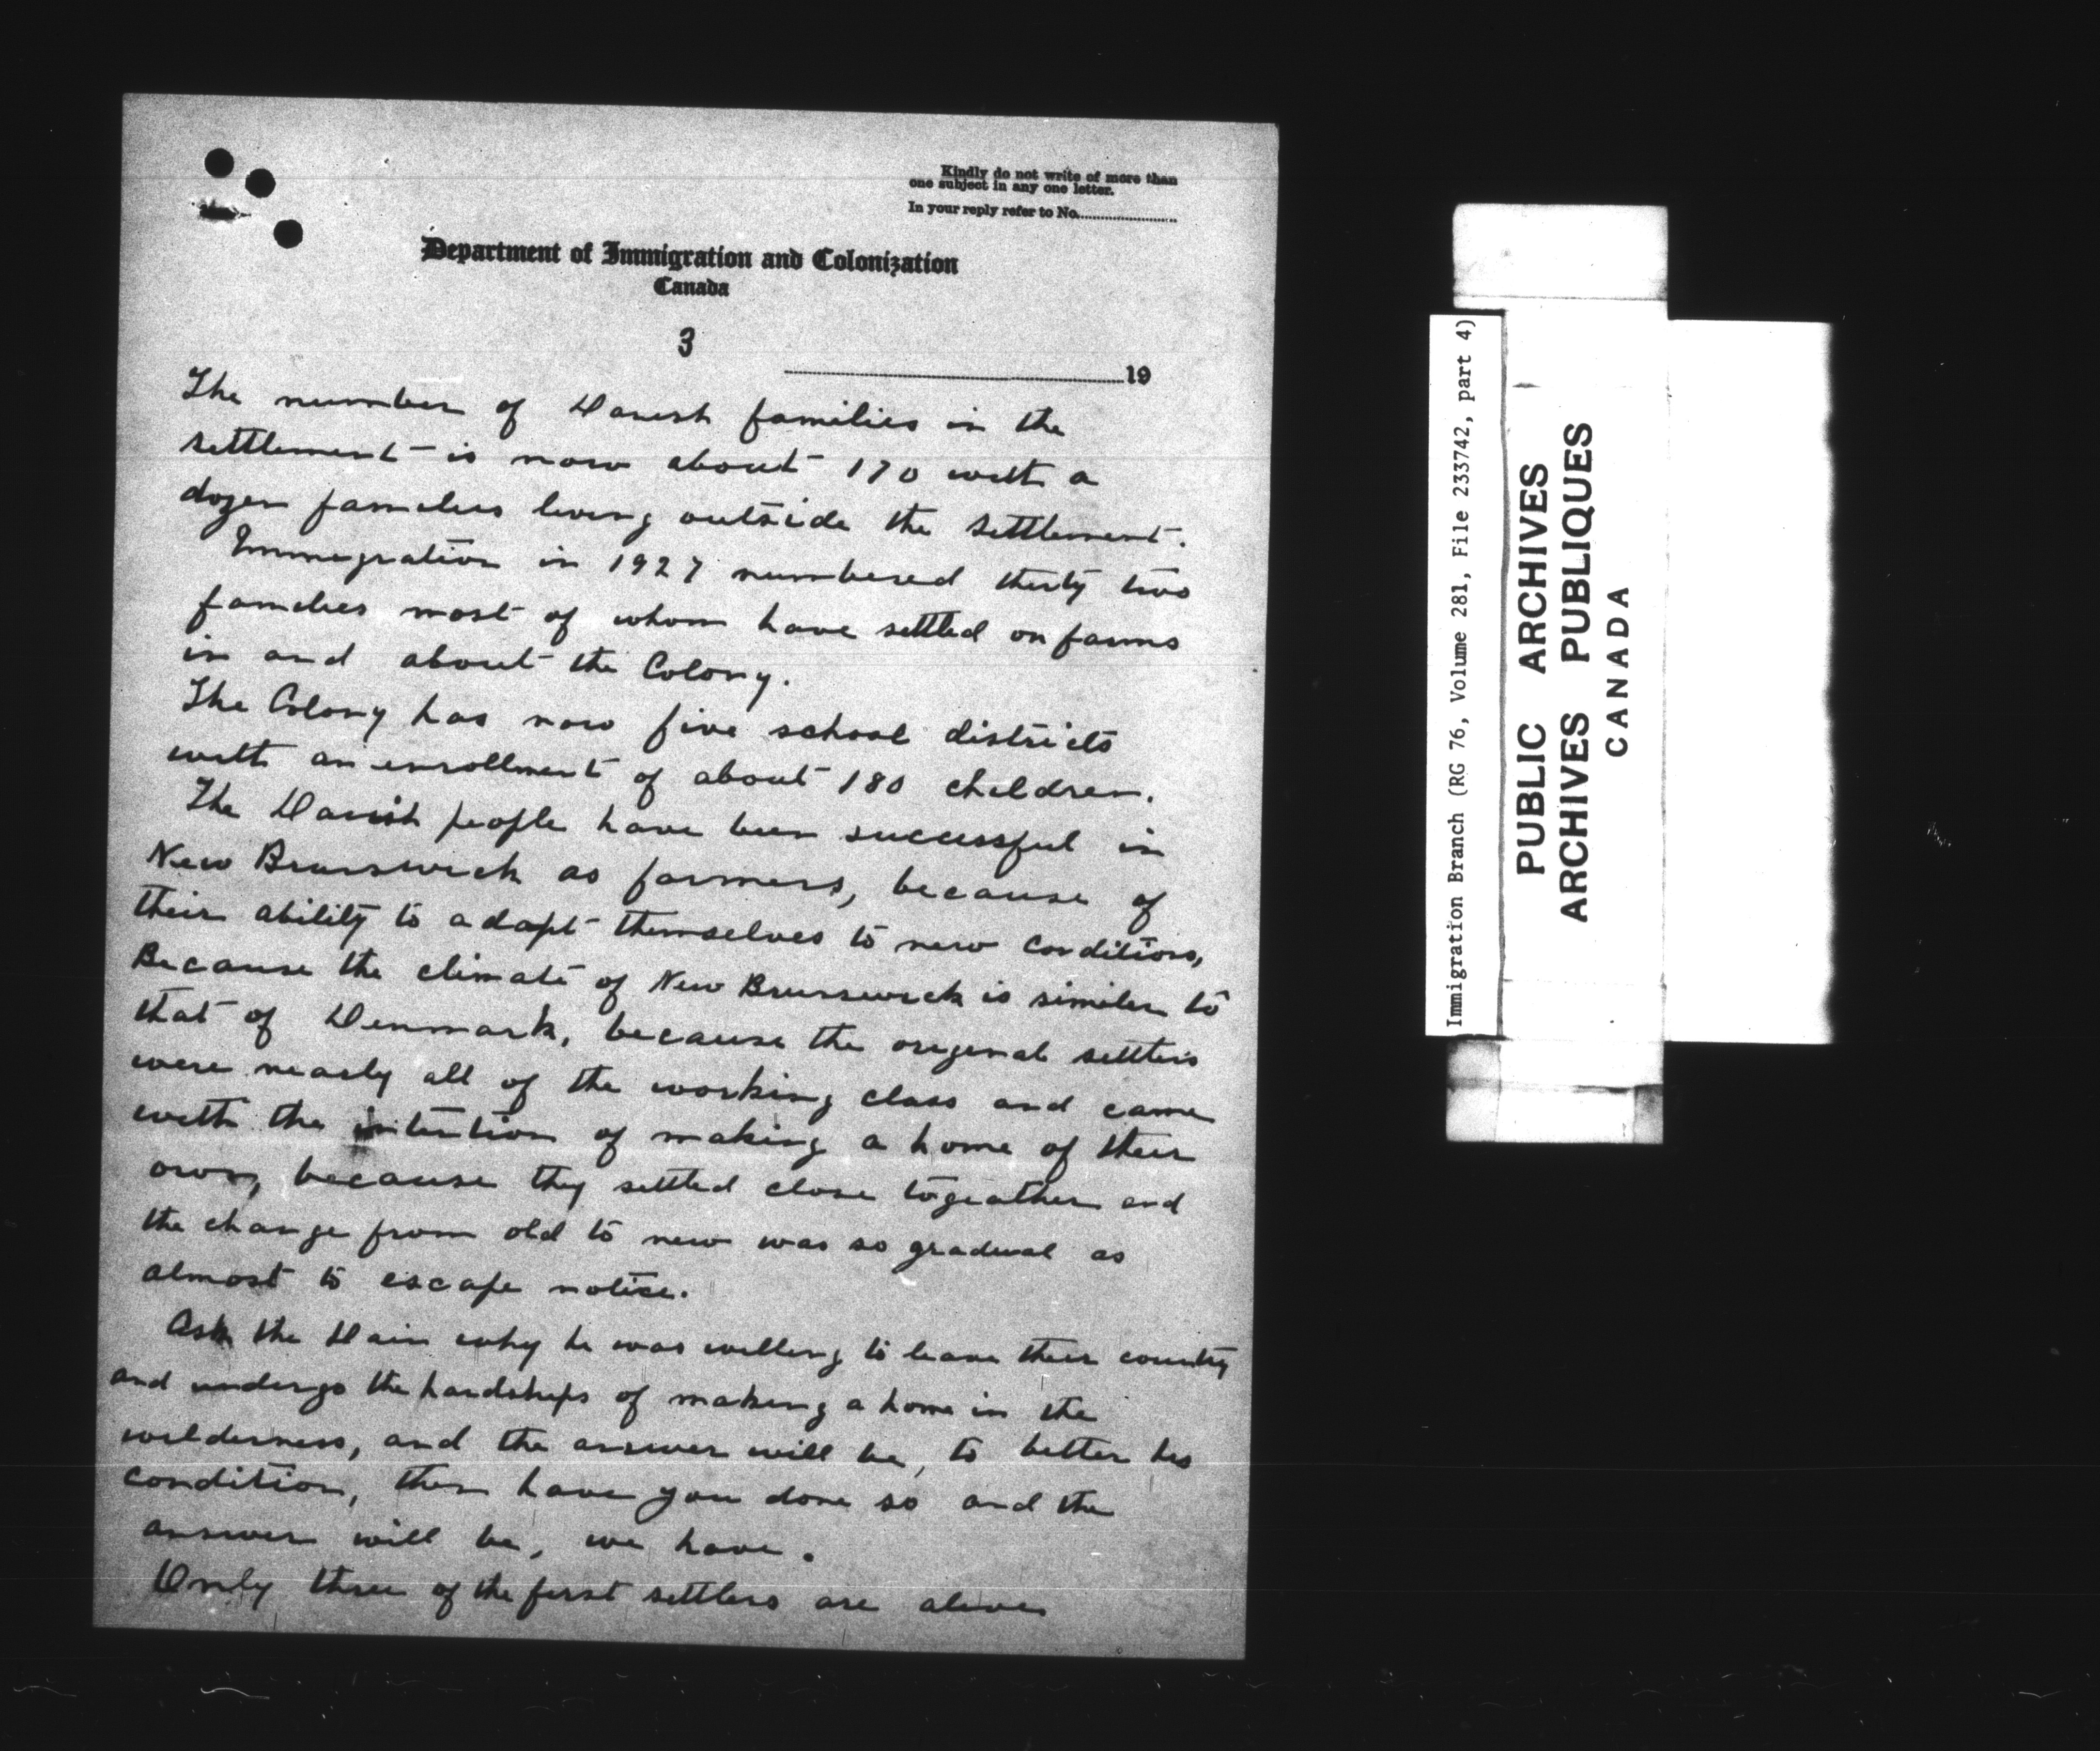 Kindly do not write of more than
one subject in any one letter.
In your reply refer to No...........................
Department of Immigration and Colonization
Canada
3
..............................19
The number of Danish families in the
settlement is now about 170 with a
dozen families living outside the settlement.
Immigration in 1927 numbered thirty two
families most of whom have settled on farms
in and about the Colony.
The Colony has now five school districts
with an enrollment of about 180 children.
The Danish people have been successful in
New Brunswick as farmers, because of
their ability to adapt themselves to new conditions,
Because the climate of New Brunswick is similar to
that of Denmark, because the original settlers
were nearly all of the working class and came
with the intention of making a home of their
own, because they settled close togeather and
the change from old to new was so gradual as
almost to escape notice.
Ask the Dain why he was willing to leave their country
and undergo the hardships of making a home in the
wilderness, and the answer will be, to better his
condition, then have you done so and the
answer will be, we have.
Only three of the first settlers are alive
Immigration Branch (RG 76, Volume 281, File 233742, part 4)
PUBLIC ARCHIVES
ARCHIVES PUBLIQUES
CANADA